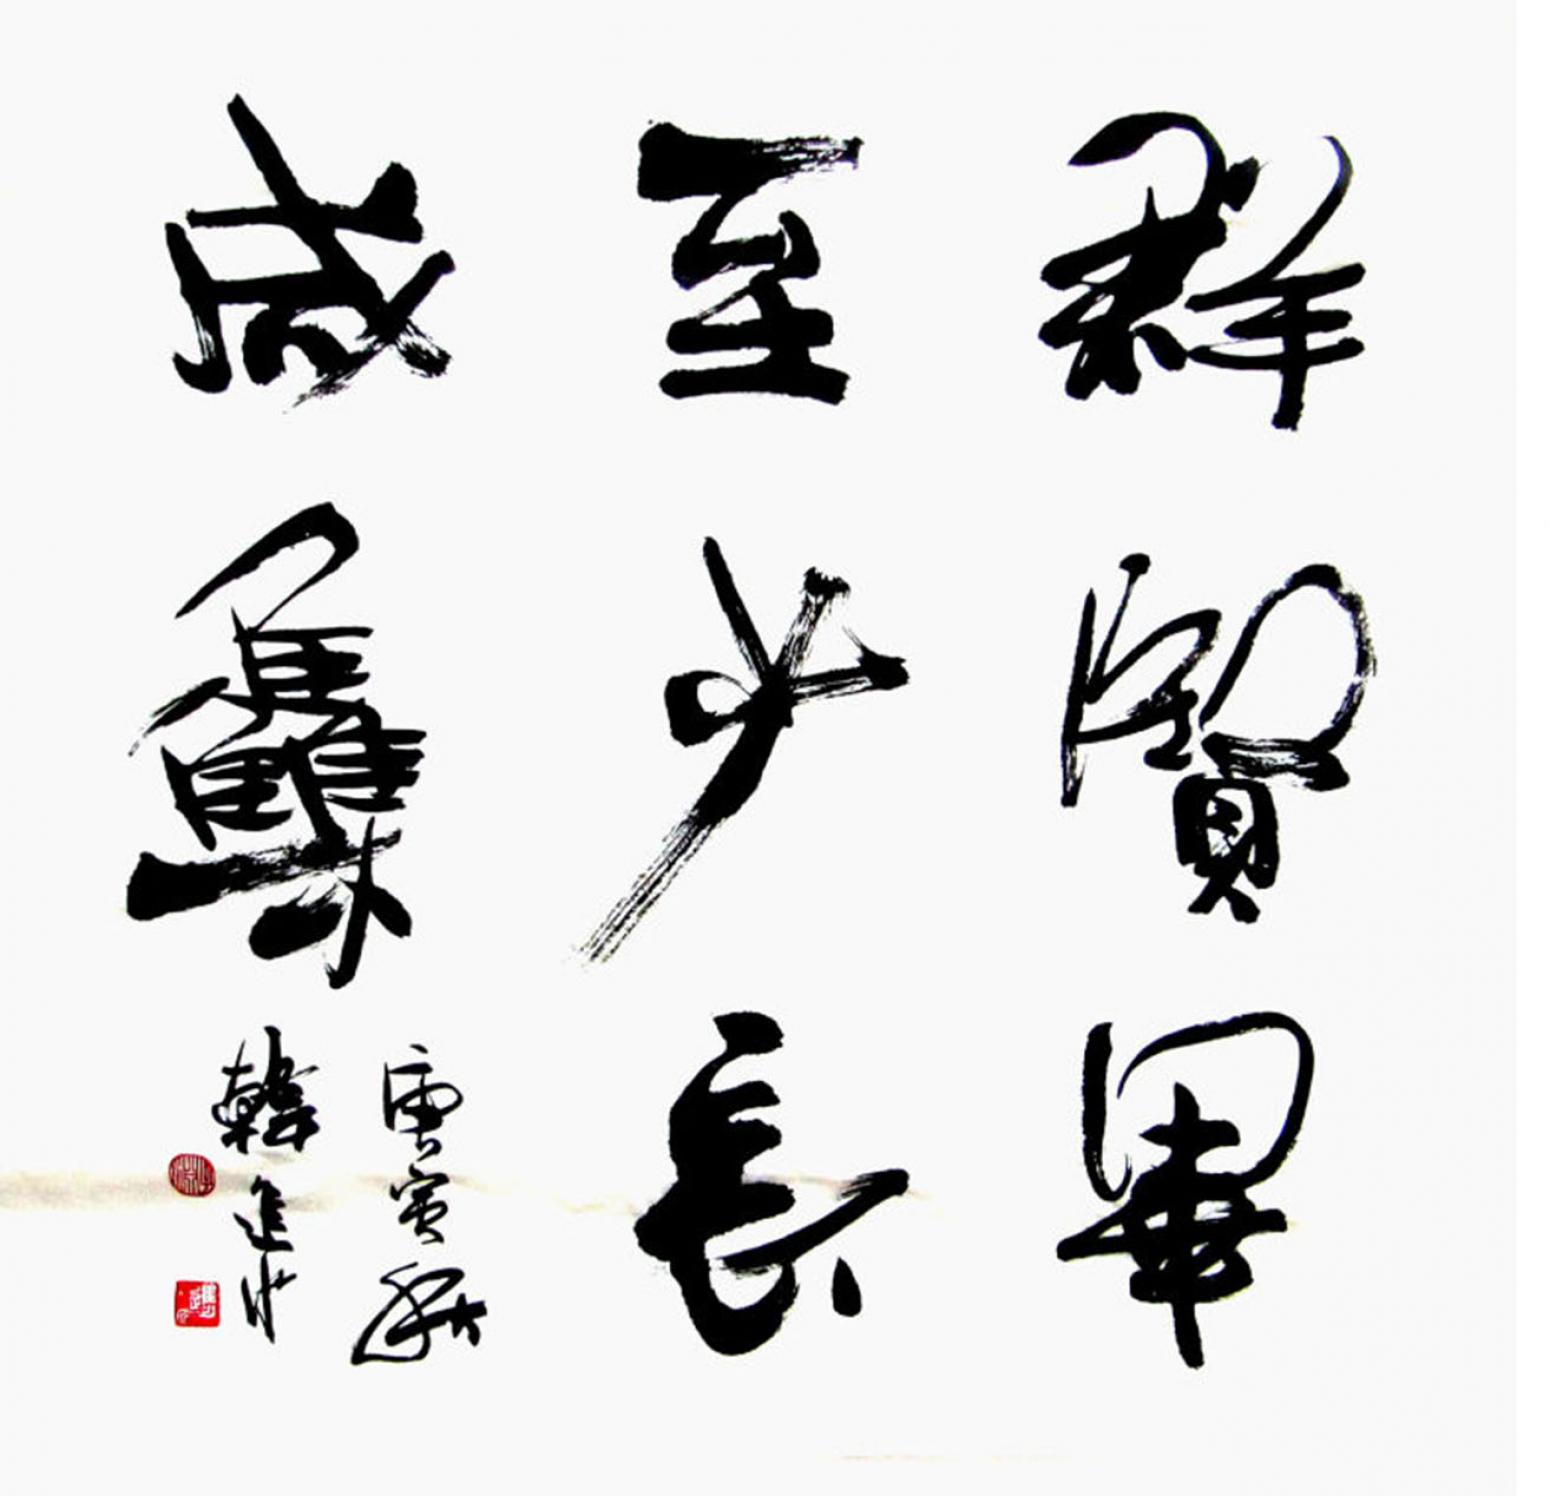 群賢畢
至少長
咸集
庚寅秋
韓進水